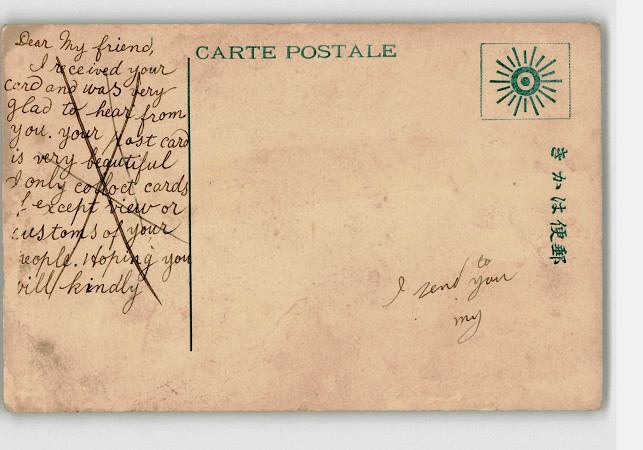 Dear My friend,
I received your
card and was very
glad to hear from
you. your post card
is very beautiful
I only colloct cards
! except view or
customs of your
people. Hoping you
will kindly
CARTE POSTALE
きかは便郵
I send to you
my